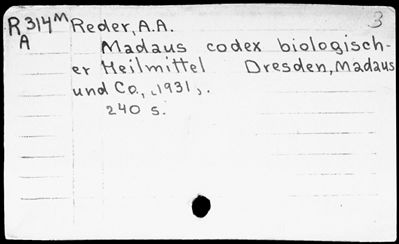 3
R314M Reder, A.A.
A Madaus codex biologisch-
er Heilmittel Dresden, Madaus
und Co., [1931].
240 s.